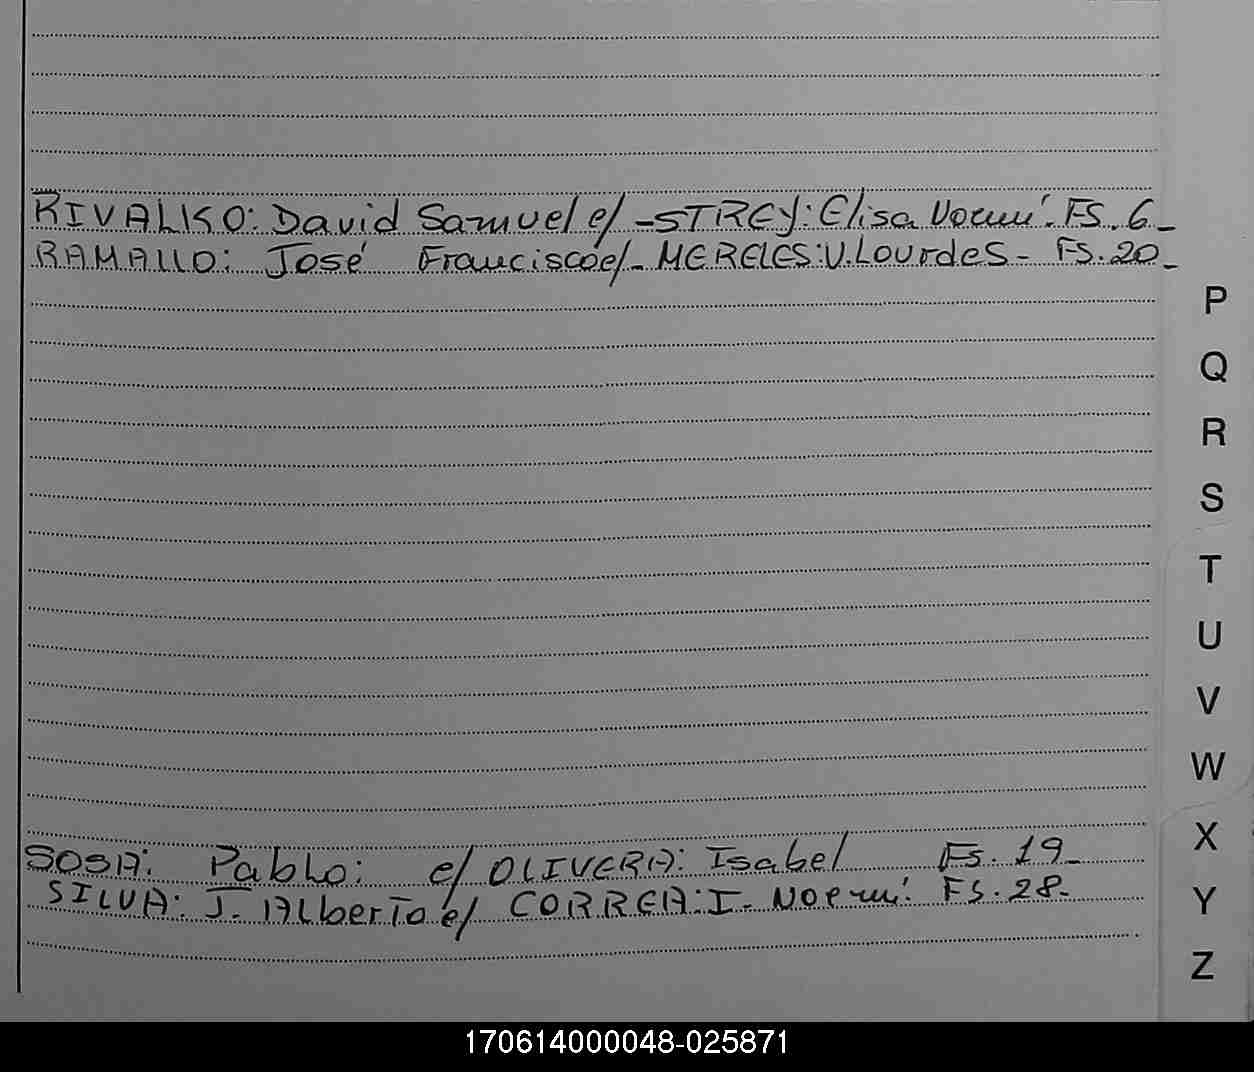 RIVALKO: David Samuel c/ -STREY: Elisa Noemí. FS. 6_
RAMALLO: José Francisco c/- MERELES: V. Lourdes - FS. 20_
P
Q
R
S
T
U
V
W
SOSA: Pablo: c/ OLIVERA: Isabel Fs. 19_
X
SILVA: J. Alberto c/ CORREA: I. Noemí FS. 28-
Y
Z
170614000048-025871